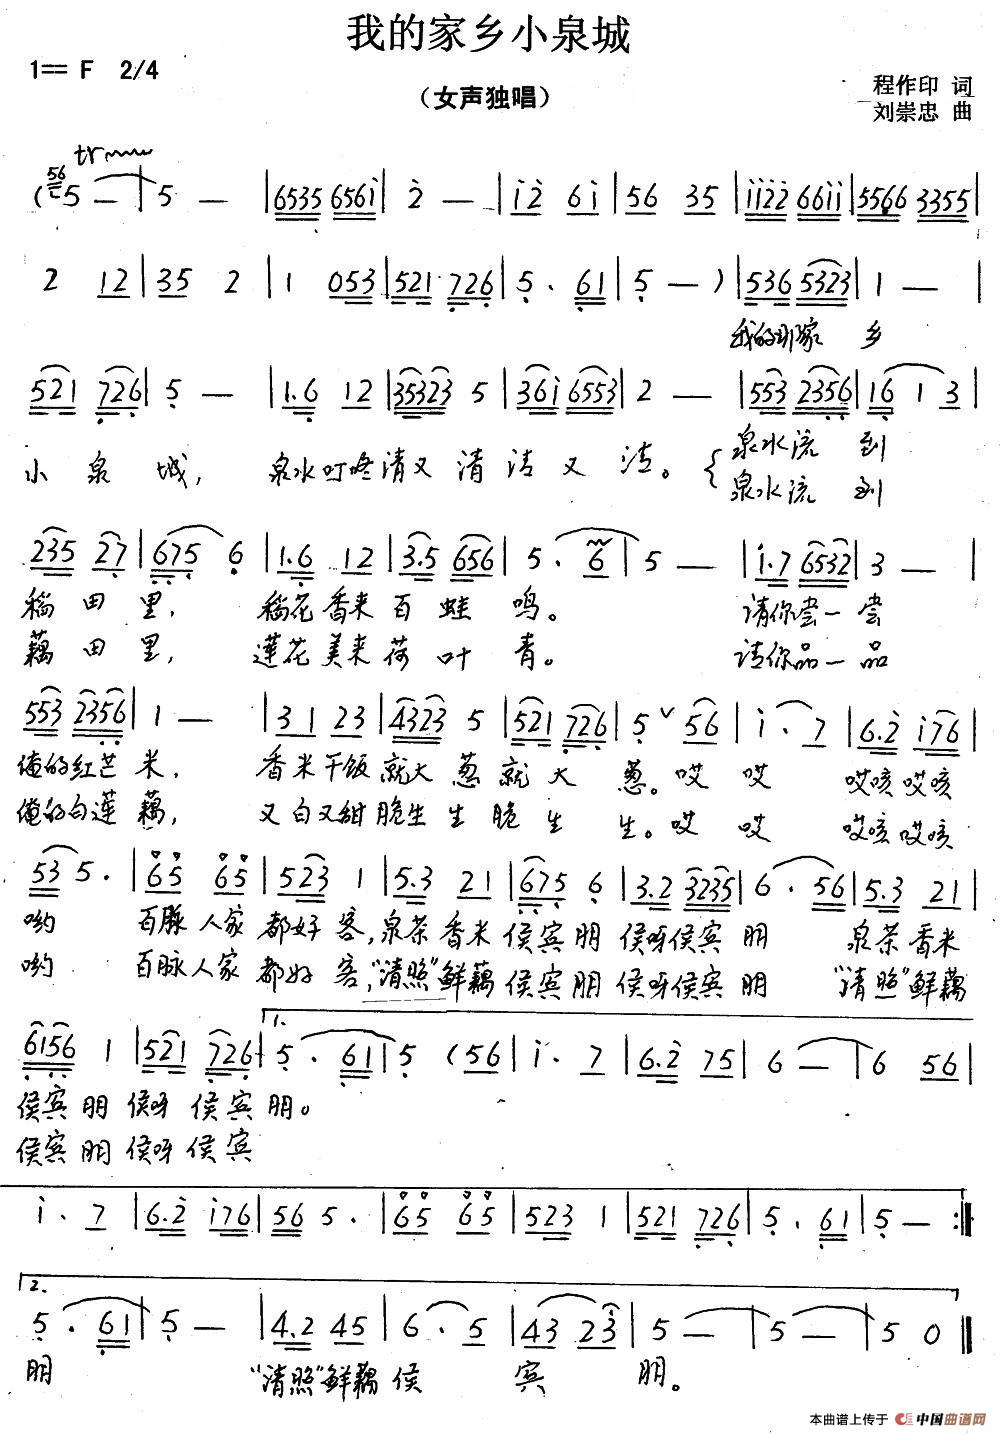 我的家乡小泉城
1== F 2/4
（女声独唱）
程作印 词
刘崇忠 曲
tr
56
( 5 — | 5 — | 6535 656i | 2 — | i2 6i | 56 35 | ii22 66ii | 5566 3355 |
2 12 | 35 2 | 1 053 | 521 726 | 5 . 61 | 5 — ) | 536 5323 | 1 — |
我的那家 乡
521 726 | 5 — | 1.6 12 | 35323 5 | 36i 6553 | 2 — | 553 2356 | 16 1 3 |
小 泉 城， 泉水叮咚清又 清 洁 又 洁。 { 泉水流 到
泉水流 到
235 27 | 675 6 | 1.6 12 | 3.5 656 | 5 . 6 | 5 — | i.7 6532 | 3 — |
稻 田 里， 稻花香来百 蛙 鸣。 请你尝一 尝
藕 田 里， 莲花美来荷 叶 青。 请你品一 品
553 2356 | 1 — | 31 23 | 4323 5 | 521 726 | 5 ∨ 56 | i . 7 | 6.2 i76 |
俺的红芒 米， 香米干饭就大 葱就 大 葱。哎 哎 哎咳哎咳
俺的白莲 藕， 又白又甜脆生 生 脆 生 生。哎 哎 哎咳哎咳
53 5 . | 65 65 | 523 1 | 5.3 21 | 675 6 | 3.2 3235 | 6 . 56 | 5.3 21 |
哟 百脉人家 都好 客，泉茶香米 侯宾 朋 侯呀侯宾 朋 泉茶香米
哟 百脉人家 都好 客，“清照”鲜藕 侯宾 朋 侯呀侯宾 朋 “清照”鲜藕
6156 1 | 521 726 | 1. 5 . 61 | 5 (56 | i . 7 | 6.2 75 | 6 — | 6 56 |
侯宾 朋 侯呀 侯宾 朋。
侯宾 朋 侯呀 侯宾
i . 7 | 6.2 i76 | 56 5 . | 65 65 | 523 1 | 521 726 | 5 . 61 | 5 — :‖
2. 5 . 61 | 5 — | 4.2 45 | 6 . 5 | 43 23 | 5 — | 5 — | 5 0 ‖
朋 “清照”鲜藕 侯 宾 朋。
本曲谱上传于 中国曲谱网